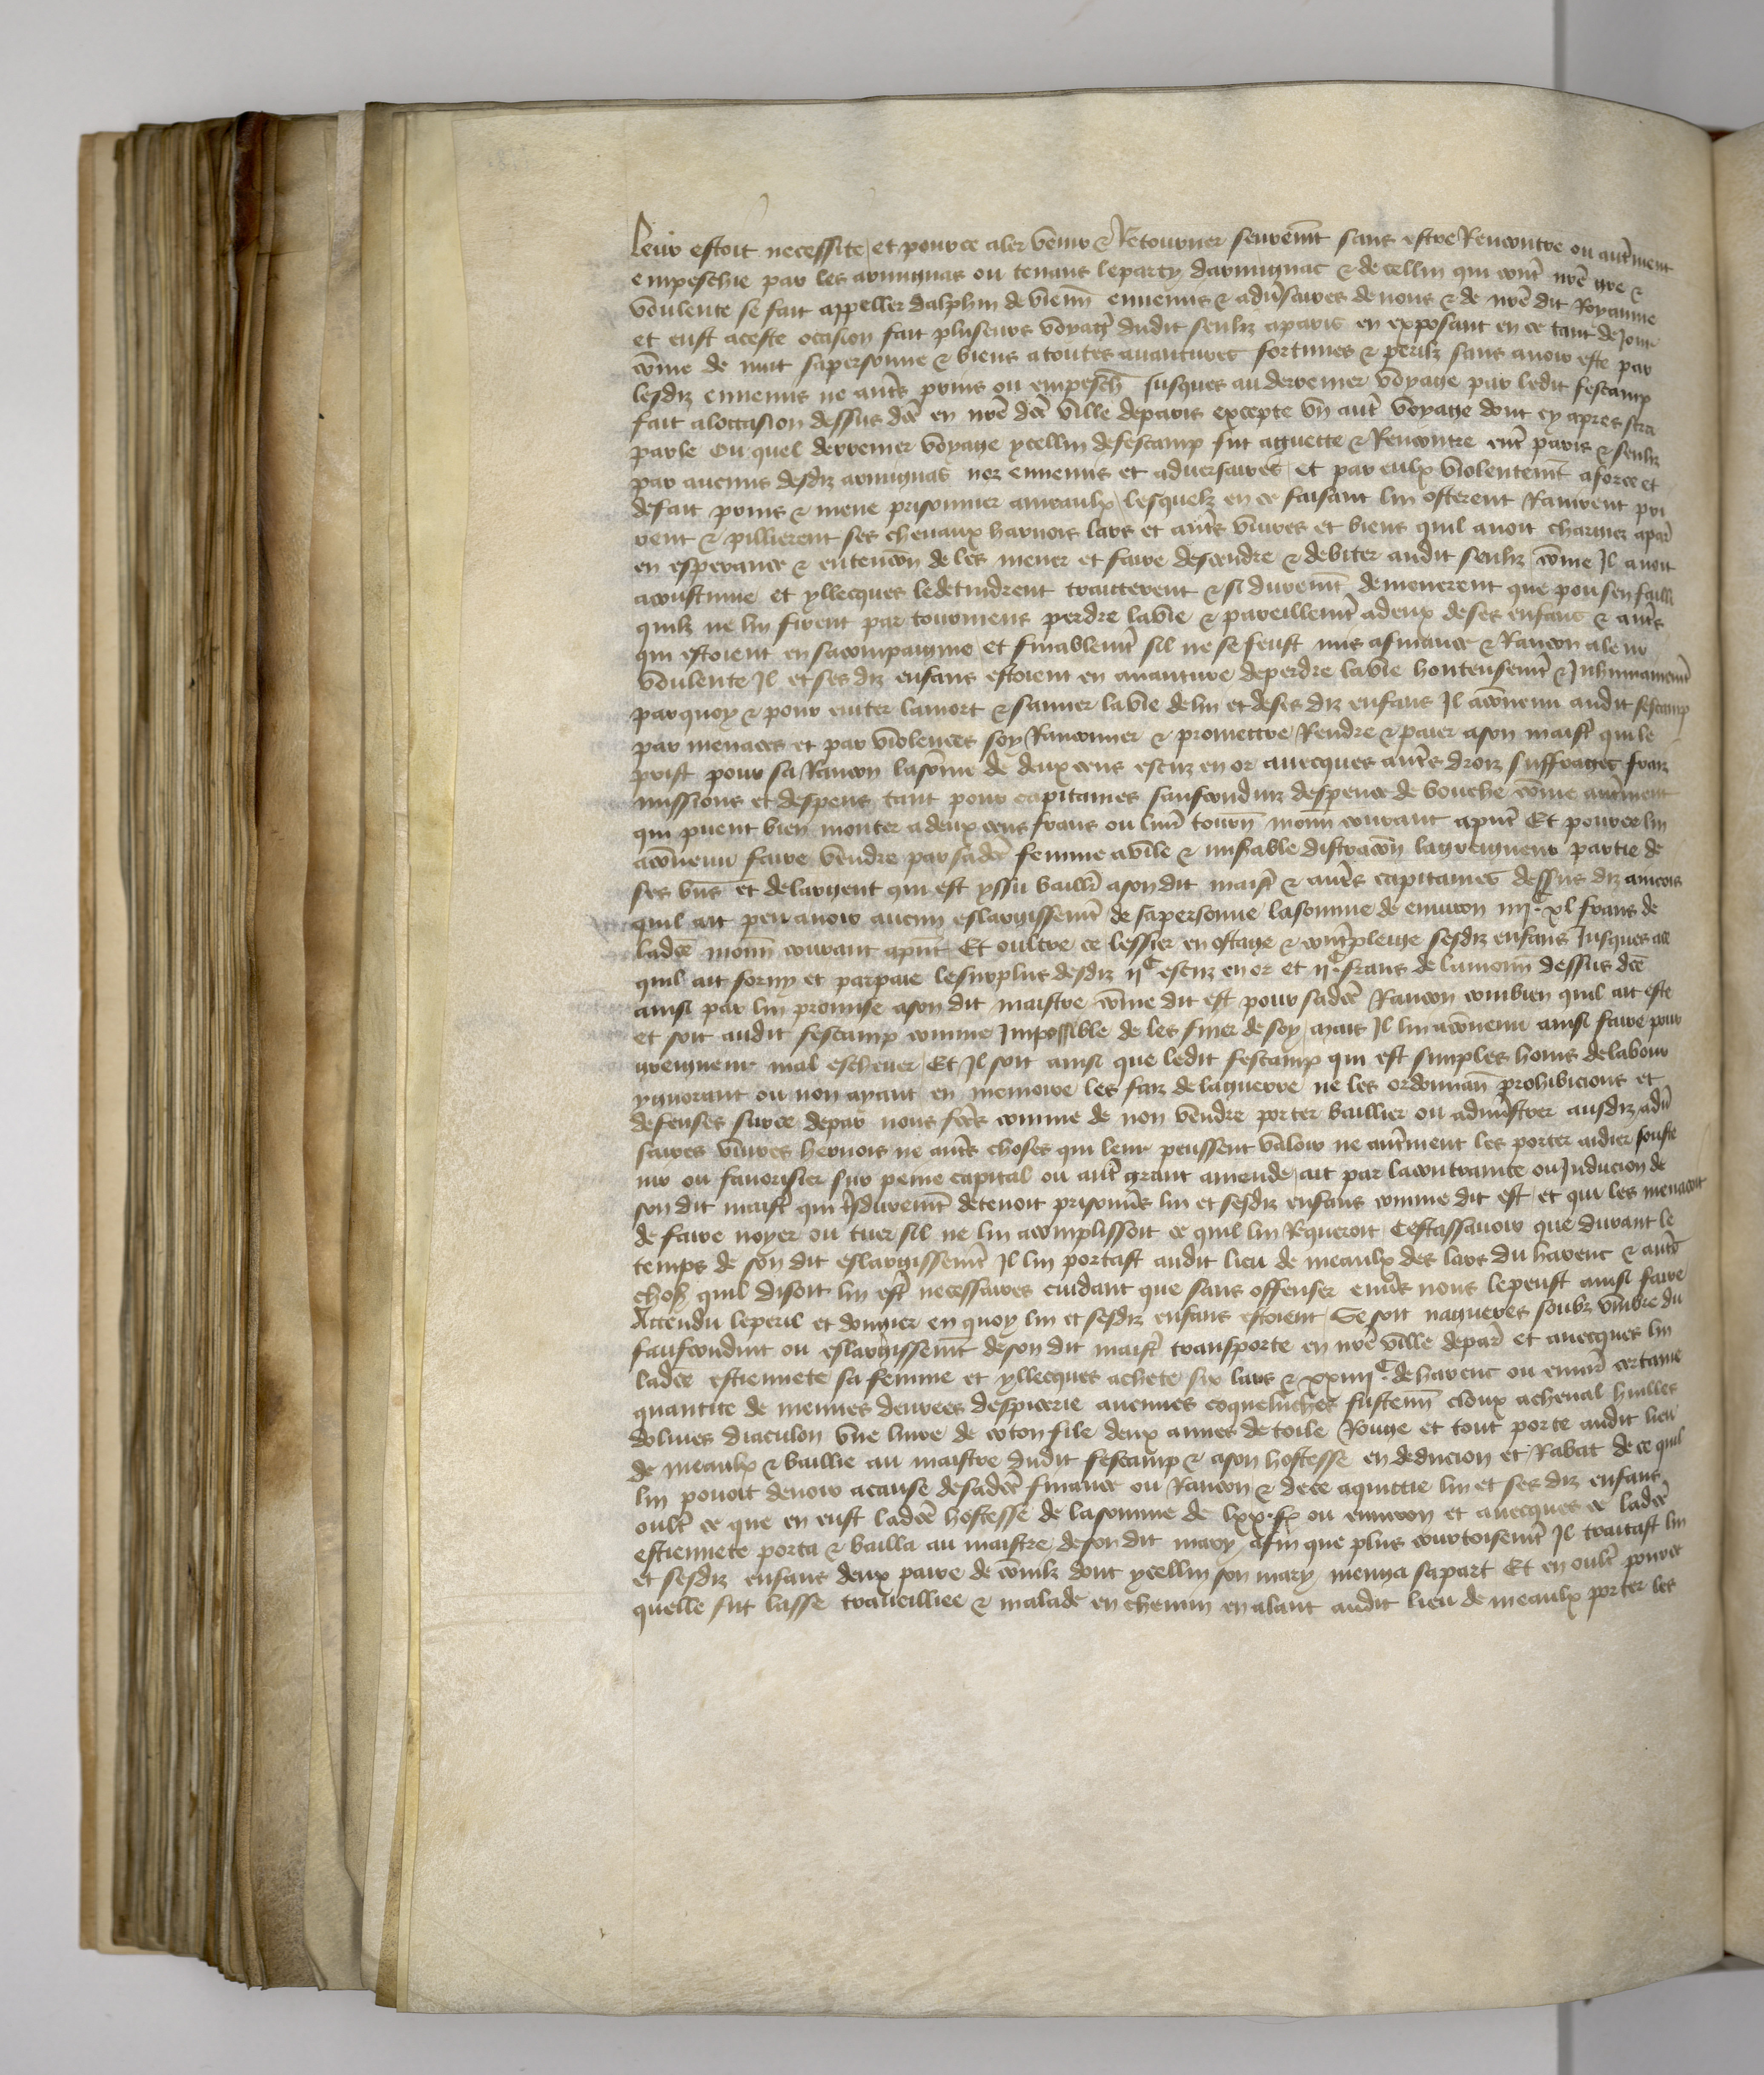 leur estoit necessite et pource aler venir & Retourner seurem̃t sans estre Rencontre ou autr̃ment
empeschie par les armignas ou tenans leparty darmignac & de cellui qui contr̃ nr̃e gre &
voulente se fait appeller dalphin de vienñ ennemis & adũsaires de nous & de nr̃e dit Royaume
et eust aceste ocasion fait pluseurs voyaĝ dudit senliz aparis en exposant en ce tant de Jour
com̃e de nuit sapersonne & biens atoutes auantures fortunes & perilz sans auoir este par
lesdiz ennemis ne autr̃s prins ou empesch̃ Jusques au derrenier voyage par ledit fescamp
fait aloccasion dessus dc̃e en nr̃e dc̃e ville deparis excepte vñ autr̃ voyage dont cy apres sera
parle Ou quel derrenier voyage ycellui defescamp fut aguette & Rencontre entr̃ paris & senliz
par aucuns desdiz armignas noz ennemis et aduersaires et par eulx violentem̃t aforce et
defait prins & mene prisonnier a meaulx lesquelz en ce faisant lui osterent Rauirent pri
rent & pillierent ses cheuaux harnois lars et autr̃s viures et biens quil auoit chargiez apar̃
en esperance & entencõn de les mener et faire descendre & debiter audit senliz com̃e Il auoit
acoustume et yllecques ledetindrent traicterent & si durem̃t demenerent que pou sen failli
quilz ne lui firent par tourmens perdre lavie & pareillem̃t adeux deses enfans & autr̃s
qui estoient en sacompaignie et finablem̃t sil ne se feust mis afinance & Rancon aleur
voulente Il et ses diz enfans estoient en auanture deperdre lavie honteusem̃t & Inhumainem̃t
parquoy & pour euiter lamort & sauuer lavie delui et deses diz enfans Il aconuenu audit fescamp
par menaces et par violences soy Ranconner & promettre Rendre & paier ason maistr̃ quile
prist pour sa Rancon lasom̃e de deux cens escuz en or auecques autr̃s droiz suffrages fraiz
missions et despens tant pour capitaines saufconduiz despence de bouche com̃e autr̃ment
qui puent bien monter a deux cens frans ou lim̃ tourñ monñ courant apñt Et pource lui
aconuenu faire vendre par sadc̃e femme a vile & miserable distracõn lagreigneur partie de
ses bñs et delargent qui est yssu baill̃ ason dit maistr̃ & autr̃s capitaines dessus diz aincois
quil ait peu auoir aucun eslargissem̃t de sapersonne lasomme de enuiron iiiᶜ xl frans de
ladc̃e monñ courant apñt Et oultre ce lessier en ostage & contr̃pleige sesdiz enfans Jusques ace
quil ait forny et parpaie lesurplus desdiz iiᶜ escuz en or et iiᶜ frans de lamonñ dessus dc̃e
ainsi par lui promise ason dit maistre com̃e dit est pour sadc̃e Rancon combien quil ait este
et soit audit fescamp comme Impossible de les finer de soy mais Il lui aconuenu ainsi faire pour
greigneur mal escheuer Et Il soit ainsi que ledit fescamp qui est simples homs delabour
ygnorant ou non ayant en memoire les faiz de laguerre ne les ordonnanc̃ prohibicions et
defenses surce depar nous fc̃es comme de non vendre porter baillier ou admĩstrer ausdiz adũ
saires viures hernois ne autr̃s choses qui leur peussent valoir ne autr̃ment les porter aidier souste
nir ou fauorisier sur peine capital ou autr̃ grant amende ait par lacontrainte ou Inducion de
son dit maistr̃ qui tr̃sdurem̃t detenoit prisonñs lui et sesdiz enfans comme dit est et qui les menacoit
de faire noyer ou tuer sil ne lui acomplissoit ce quil lui Requeroit Cestassauoir que durant le
temps de son dit eslargissem̃t Il lui portast audit lieu de meaulx des lars du harenc & autr̃s
chos̃ quil disoit lui estr̃ necessaires cuidant que sans offenser enũs nous lepeust ainsi faire
Attendu leperil et dongier en quoy lui et sesdiz enfans estoient Se soit nagueres soubz vmbre du
saufconduit ou eslargissem̃t deson dit maistr̃ transporte en nr̃e ville depar̃ et auecques lui
ladc̃e estiennete sa femme et yllecques achete six lars & xxiiiiᶜ de harenc ou enuir̃ certaine
quantite de menues denrees despicerie aucunes coqueluches fustenñ cloux acheual huilles
doliues diaculon vne liure de coton file deux aunes detoile Rouge et tout porte audit lieu
de meaulx & baillie au maistre dudit fescamp & ason hostesse en deducion et Rabat de ce quil
lui pouoit deuoir acause desadc̃e finance ou Rancon & dece aquittie lui et ses diz enfans
oultr̃ ce que en eust ladc̃e hostesse de lasomme de lxx fr̃ ou enuiron et auecques ce ladc̃e
estiennete porta & bailla au maistre deson dit mary afin que plus courtoisem̃t Il traitast lui
et sesdiz enfans deux paire de com̃lz dont ycellui son mary menga sapart Et en oultr̃ pource
quelle fut lasse traueilliee & malade en chemin en alant audit lieu de meaulx porter les